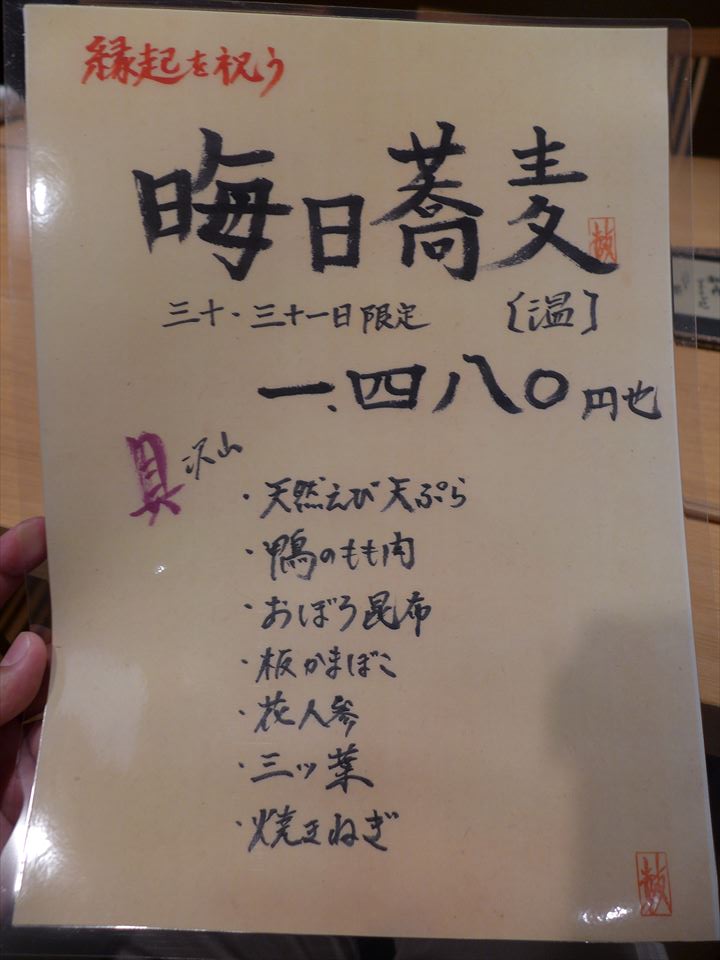 縁起を祝う
晦日蕎麦
三十・三十一日限定 〔温〕
一、四八〇円也
具沢山
・天然えび天ぷら
・鴨のもも肉
・おぼろ昆布
・板かまぼこ
・花人参
・三ッ葉
・焼きねぎ